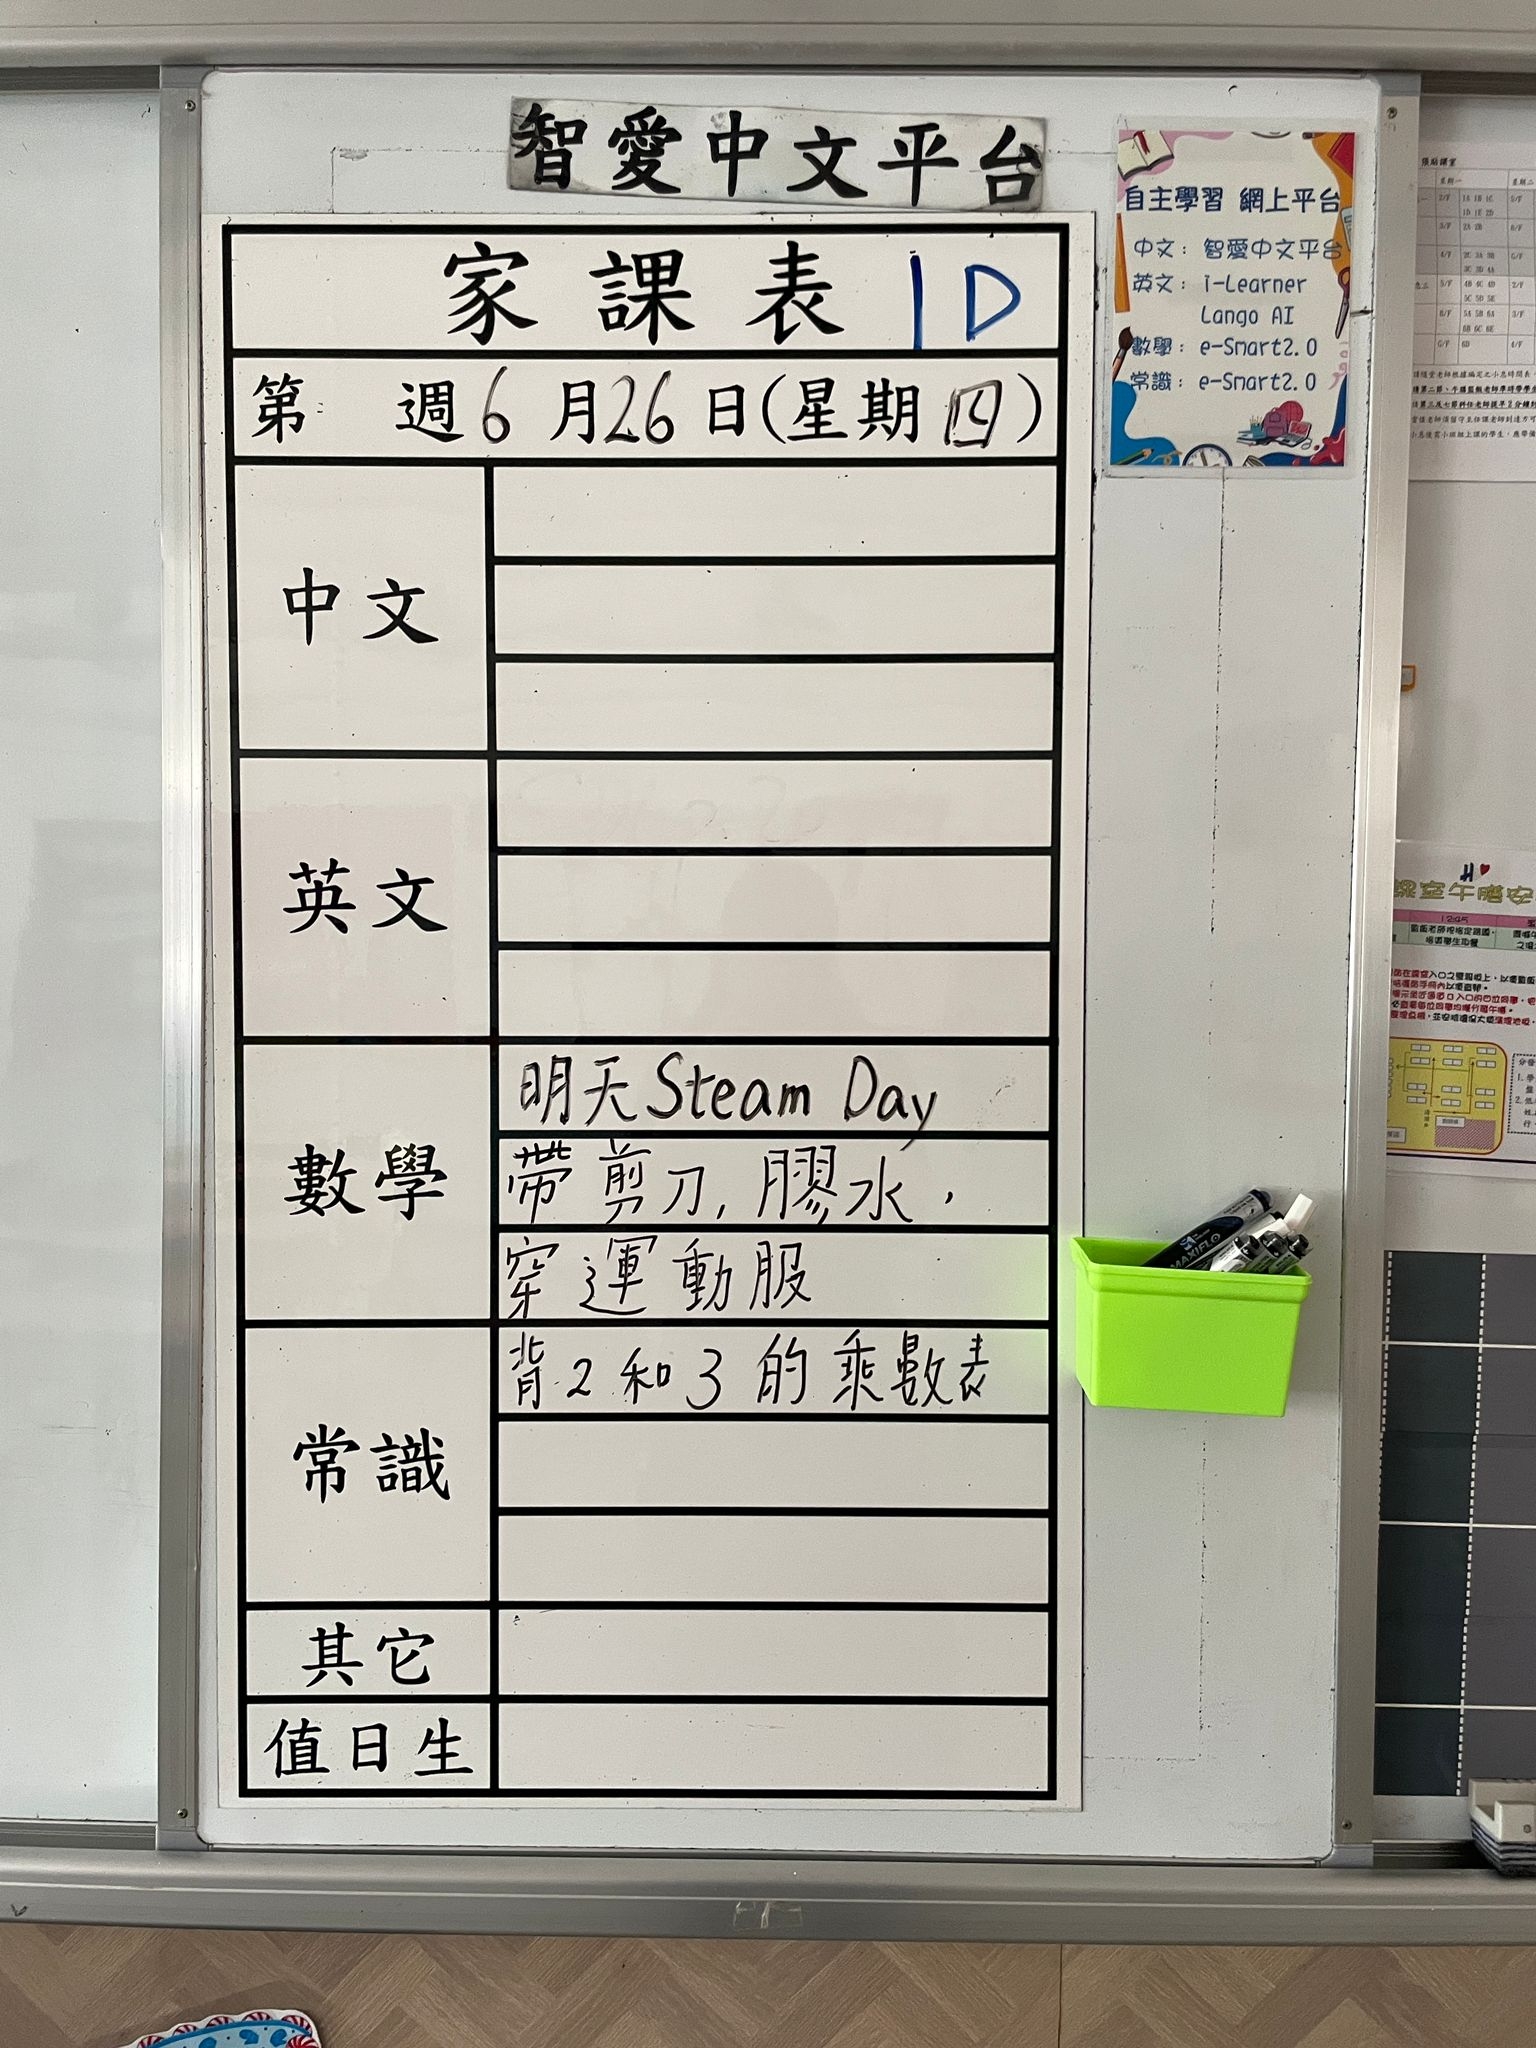 智愛中文平台
家課表 1D
第 週 6月26日(星期四)
中文
英文
數學
明天Steam Day
帶剪刀, 膠水,
穿運動服
常識
背2和3的乘數表
其它
值日生
自主學習 網上平台
中文: 智愛中文平台
英文: i-Learner
Lango AI
數學: e-Smart2.0
常識: e-Smart2.0
MAXIFLO
張貼課室
星期一
星期二
12:45